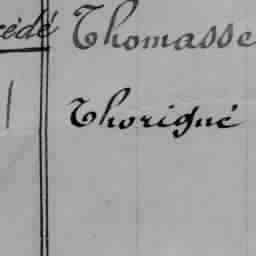 cédé Thomasse
Thorigné